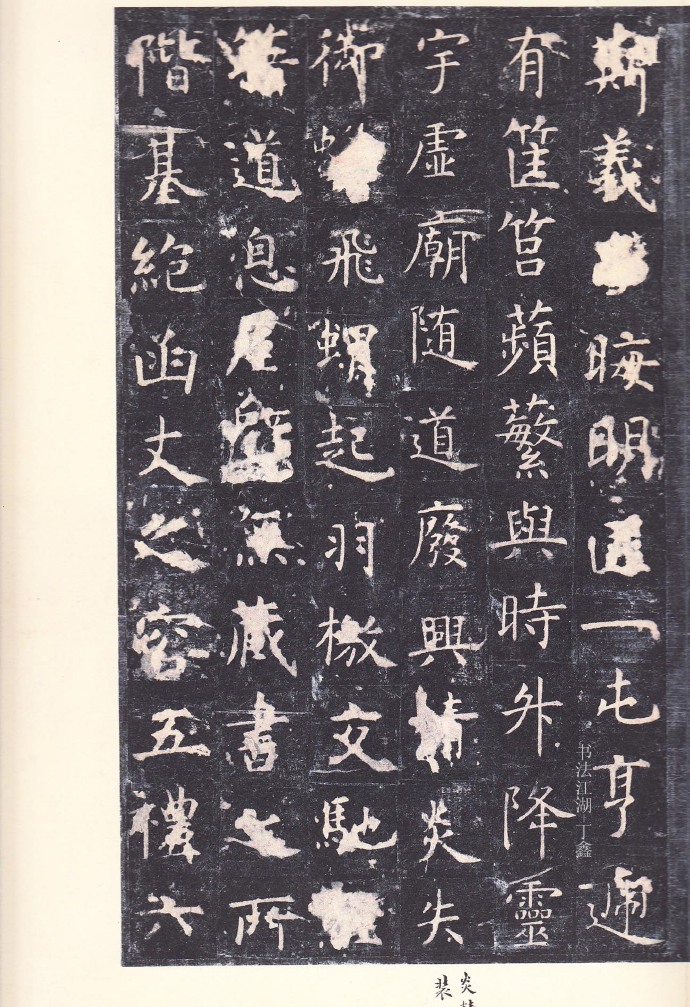 斯義晦明匪一屯亨遞
有筐筥蘋蘩與時升降靈
宇虛廟隨道廢興精炎失
御飛蝟起羽檄交馳
道息屋壁無藏書之所
階基絕函丈之容五禮六
书法江湖丁鑫
炎